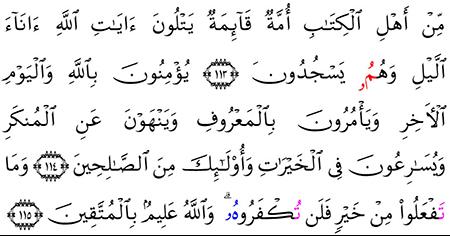 مِّنۡ أَهۡلِ ٱلۡكِتَٰبِ أُمَّةٞ قَآئِمَةٞ يَتۡلُونَ ءَايَٰتِ ٱللَّهِ ءَانَآءَ
ٱلَّيۡلِ وَهُمُۥ يَسۡجُدُونَ ١١٣ يُؤۡمِنُونَ بِٱللَّهِ وَٱلۡيَوۡمِ
ٱلۡأٓخِرِ وَيَأۡمُرُونَ بِٱلۡمَعۡرُوفِ وَيَنۡهَوۡنَ عَنِ ٱلۡمُنكَرِ
وَيُسَٰرِعُونَ فِي ٱلۡخَيۡرَٰتِ وَأُوْلَٰٓئِكَ مِنَ ٱلصَّٰلِحِينَ ١١٤ وَمَا
تَفۡعَلُواْ مِنۡ خَيۡرٖ فَلَن تُكۡفَرُوهُۥۗ وَٱللَّهُ عَلِيمُۢ بِٱلۡمُتَّقِينَ ١١٥